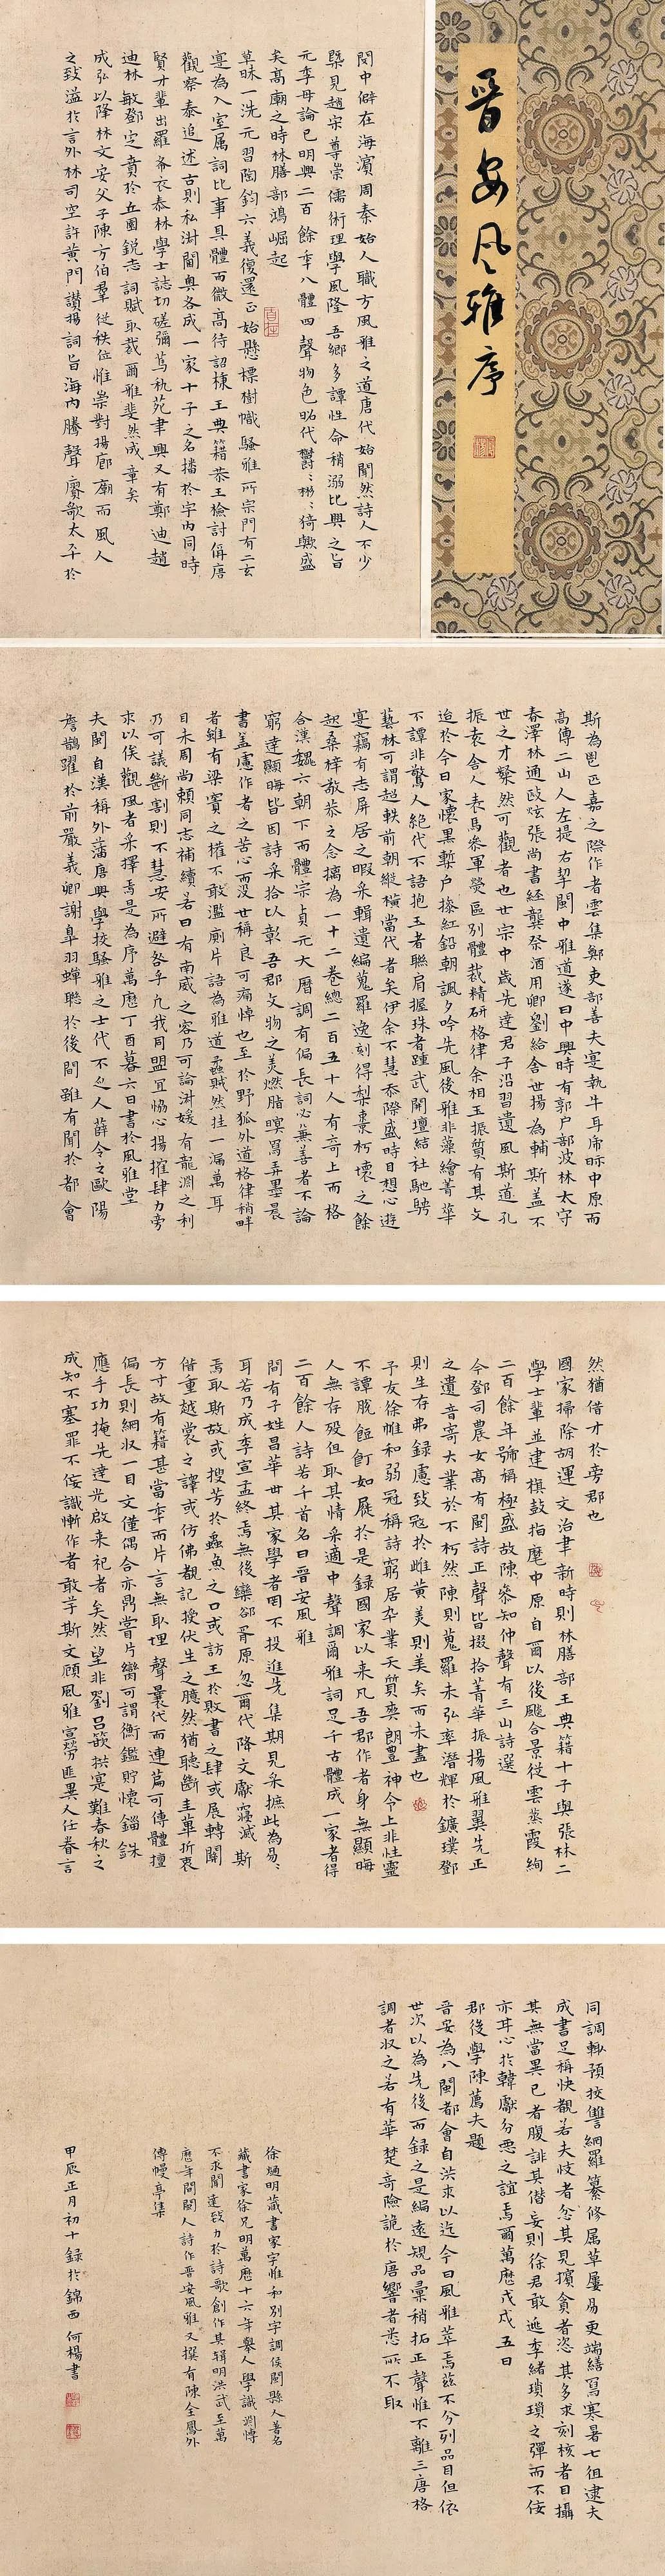 晋安風雅序
閩中僻在海濵周秦始入職方風雅之道唐代始聞然詩人不少
槩見趙宋尊崇儒術理學風隆吾鄉多譚性命稍溺比興之旨
元季毋論已明興二百餘年八體四聲物色昭代鬱〻彬〻猗歟盛
矣高廟之時林膳部鴻崛起
草昧一洗元習陶鈞六義復還正始懸標樹幟騷雅所宗門有二玄
寔為入室属詞比事具體而微髙待詔棅王典籍恭王檢討偁唐
觀察泰追述古則私淑閫奥各成一家十子之名播於宇内同時
賢才輩出羅㪲衣泰林學士誌切磋彌荺秇苑聿興又有鄭迪趙
迪林敏鄧定賁於丘園鋭志詞賦取裁爾雅斐然成章矣
成弘以降林文安父子陳方伯羣從秩位惟崇對揚廊廟而風人
之致溢於言外林司空許黄門讚揚詞旨海内騰聲賡歌太平於
斯為鬯正嘉之際作者雲集鄭吏部善夫寔執牛耳虎眎中原而
髙傅二山人左提右挈閩中雅道遂曰中興時有郭户部波林太守
春澤林通政炫張尚書經龔祭酒用卿劉給舍世揚為輔斯盖不
世之才粲然可觀者也世宗中歲先達君子沿習遺風斯道孔
振袁舍人表馬叅軍熒區别體裁精研格律余相王振質有其文
迨於今日家懷黒槧户操紅鉛朝諷夕吟先風後雅非藻繪菁華
不譚非驚人絶代不語抱玉者聯肩握珠者踵武開壇結社馳騁
藝林可謂超軼前朝縱橫當代者矣伊余不慧忝際盛時目想心遊
寔竊有志屏居之暇采輯遺編蒐羅逸刻得梨棗朽壞之餘
起桑梓敬恭之念摛為一十二卷總二百五十人有奇上而格
合漢魏六朝下而體宗貞元大曆調有偏長詞必兼善者不論
窮達顯晦皆因詩采拾以彰吾郡文物之美燃脂暝寫弄墨晨
書盖慮作者之苦心而没世稱良可痛悼也至於野狐外道格律稍畔
者雖有梁竇之權不敢濫廁片語為雅道蟊賊然挂一漏萬耳
目未周尚頼同志補續若曰有南威之容乃可論淑媛有龍淵之利
乃可議斷割則不慧安所避咎乎凡我同盟宜恊心揚搉肆力旁
求以俟觀風者采擇焉是為序萬歷丁酉暮六日書於風雅堂
夫閩自漢稱外藩唐興學挍騷雅之士代不乏人薛令之歐陽
詹鵲躍於前嚴羲卿謝臯羽蟬聮於後間雖有聞於都會
然猶借才於旁郡也
國家掃除胡運文治聿新時則林膳部王典籍十子與張林二
學士輩並建旗鼓指麾中原自爾以後飈合景從雲蒸霞絢
二百餘年號稱極盛故陳叅知仲聲有三山詩選
今鄧司農女髙有閩詩正聲皆掇拾菁華振揚風雅翼先正
之遺音寄大業於不朽然陳則蒐羅未弘率潛輝於鑛璞鄧
則生存弗録慮致寇於雌黄美則美矣而未盡也
予友徐惟和弱冠稱詩窮居杂業天質奭朗豐神令上非性靈
不譚脱飣餖如屣於是録國家以来凡吾郡作者身無顯晦
人無存殁但取其情采適中聲調爾雅詞足千古體成一家者得
二百餘人詩若千首名曰晋安風雅
間有子姓昌華世其家學者罔不投進先集期見采摭此為易〻
耳若乃成季宣孟終焉無後欒郤胥原忽爾代降文獻寖滅斯
焉取斯故或搜芳於蟲魚之口或訪玉於敗書之肆或展轉關
借重越裳之譯或仿佛覩記授伏生之臆然猶聴斷圭蓽折衷
方寸故有籍甚當年而片言無取埋聲曩代而連篇可傳體擅
偏長則網収一目文僅偶合亦鼎嘗片臠可謂衡鑑貯懷錙銖
應手功掩先達光啟来祀者矣然望非劉吕欵拱寔難春秋之
成知不塞罪不侫識慚作者敢芓斯文顧風雅宣勞匪異人任眷言
同調輙預挍讐網羅纂修属草屢易更端繕寫寒暑七徂逮夫
成書足稱快觀若夫忮者忿其見擯貪者恣其多求刻核者目攝
其無當異已者腹誹其僭妄則徐君敢遜李緒瑣瑣之彈而不侫
亦甘心於韓獻分惡之誼焉爾萬歷戊戌五日
郡後學陳薦夫題
晋安為八閩都會自洪永以迄今曰風雅萃焉茲不分列品目但依
世次以為先後而録之是編遠規品彙稍拓正聲惟不離三唐格
調者収之若有華楚奇險詭於唐響者悉所不取
徐熥明藏書家字惟和别字調侯閩縣人著名
藏書家徐兄明萬歷十六年舉人學識淵博
不求聞達致力於詩歌創作其輯明洪武至萬
歷年間閩人詩作晋安風雅又撰有陳金鳳外
傳幔亭集
甲辰正月初十録於錦西何楊書